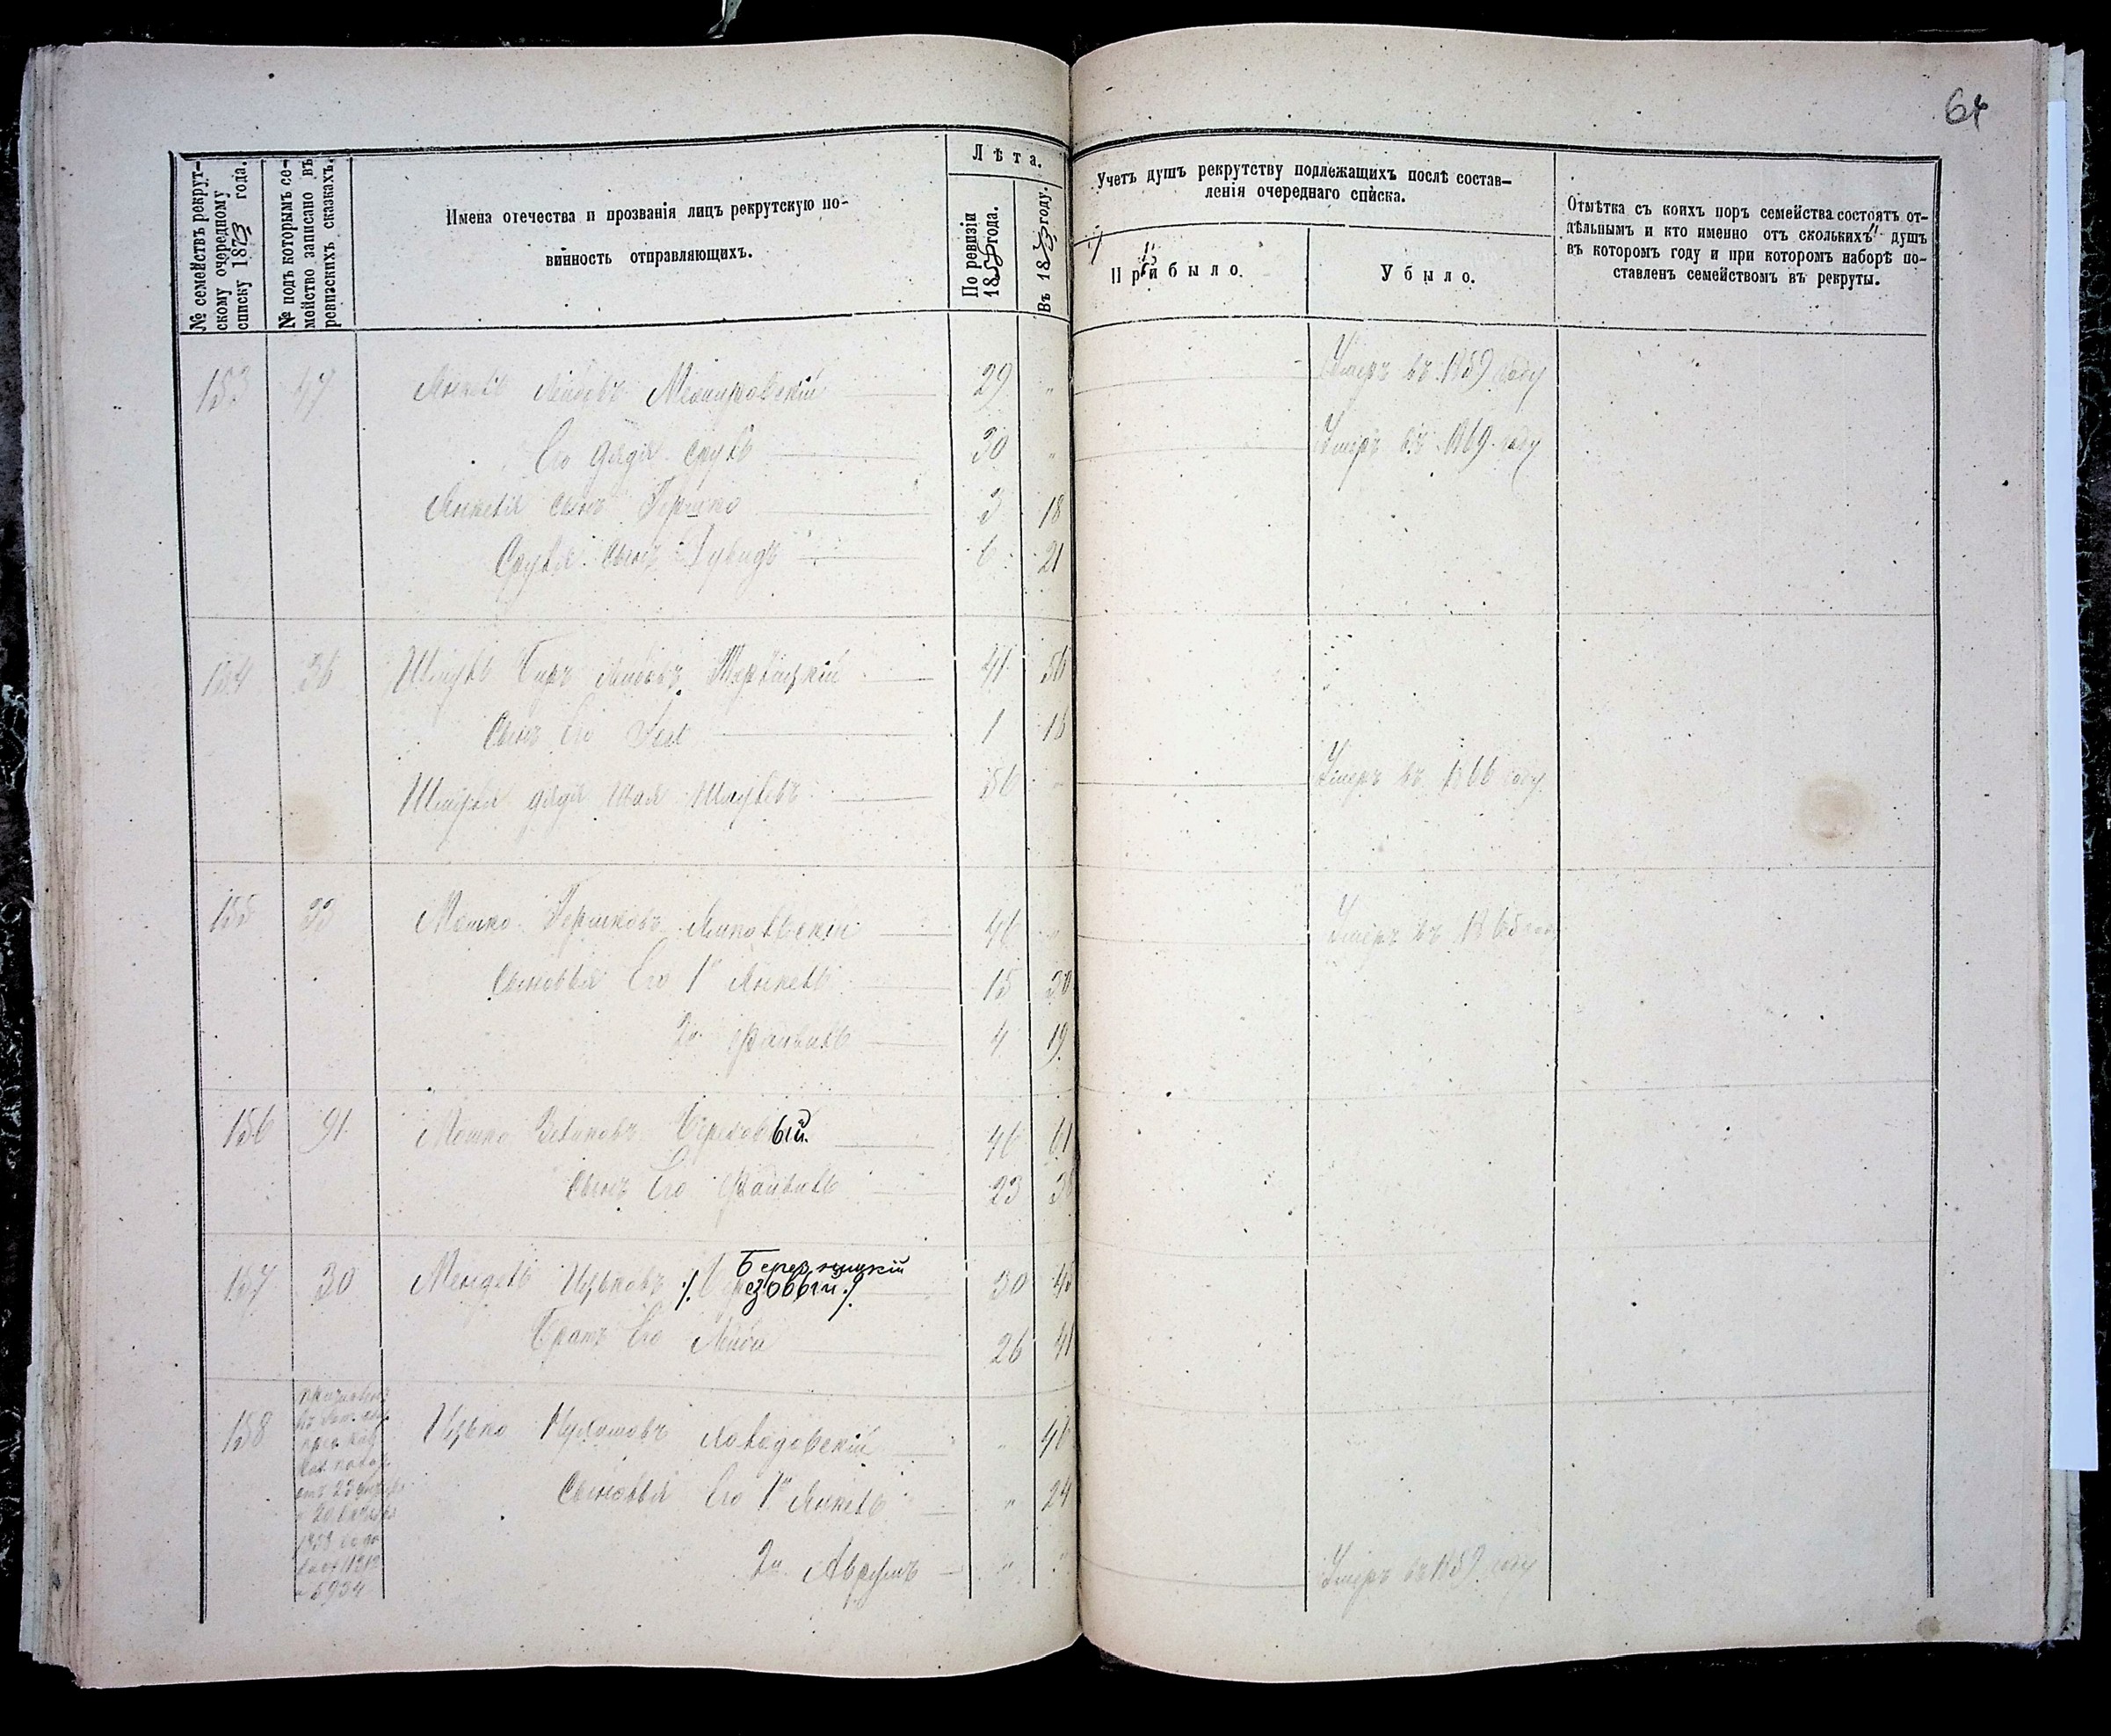 64
№ семействъ рекрут-
скому очередному
списку 1873 года.
№ подъ которымъ се-
мейство записано въ
ревизскихъ сказкахъ.
Имена отечества и прозванія лицъ рекрутскую по-
винность отправляющихъ.
Лѣта.
По ревизіи
1858 года.
Въ 1873 году.
Учетъ душъ рекрутству подлежащихъ послѣ состав-
ленія очереднаго списка.
Прибыло.
Убыло.
Отмѣтка съ коихъ поръ семейства состоятъ от-
дѣльнымъ и кто именно отъ сколькихъ душъ
въ которомъ году и при которомъ наборѣ по-
ставленъ семействомъ въ рекруты.
153 47 Янкель Лейбовъ 29 " Умеръ въ 1859 году
Его дядя Сруль 30 " Умеръ въ 1869 году
Янкеля сынъ Гершко 3 18
Сруля сынъ Дувидъ 6 21
154 36 Шмуль Беръ Лейбовъ 41 56
Сынъ Его 1 16
Шмуля дядя Шая Шмулевъ 56 Умеръ въ 1866 году
155 33 Мошко Гершковъ 46 " Умеръ въ 1865 году
Сыновья Его 1й Янкель 15 30
2й Файвель 4 19
156 91 Мошко Зельковъ 46 61
Сынъ Его Файвель 23 38
Березницкій
157 30 Мендель Ицьковъ /. Березовый ./ 30 45
Братъ Его Лейба 26 41
158 Ицько Нухимовъ " 46
Сыновья Его 1й Янкель " 24
2й Аврумъ " " Умеръ въ 1859 году
1858 года
5934